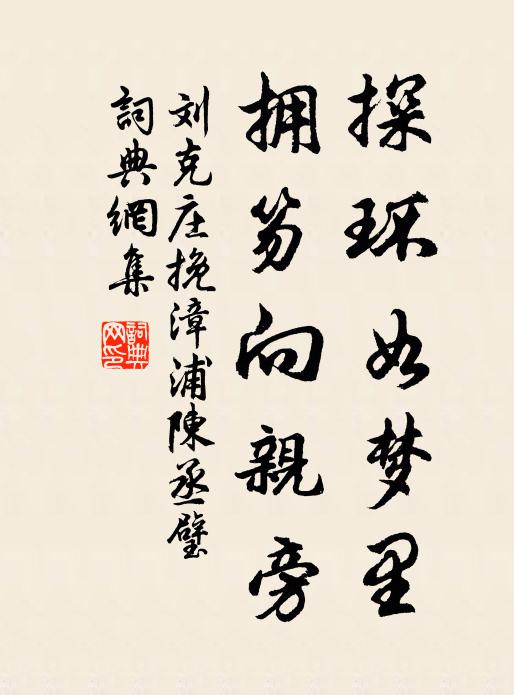 探环如梦里
拥笏向親旁
刘克庄挽漳浦陳丞璧
詞典網集
詞典
网印